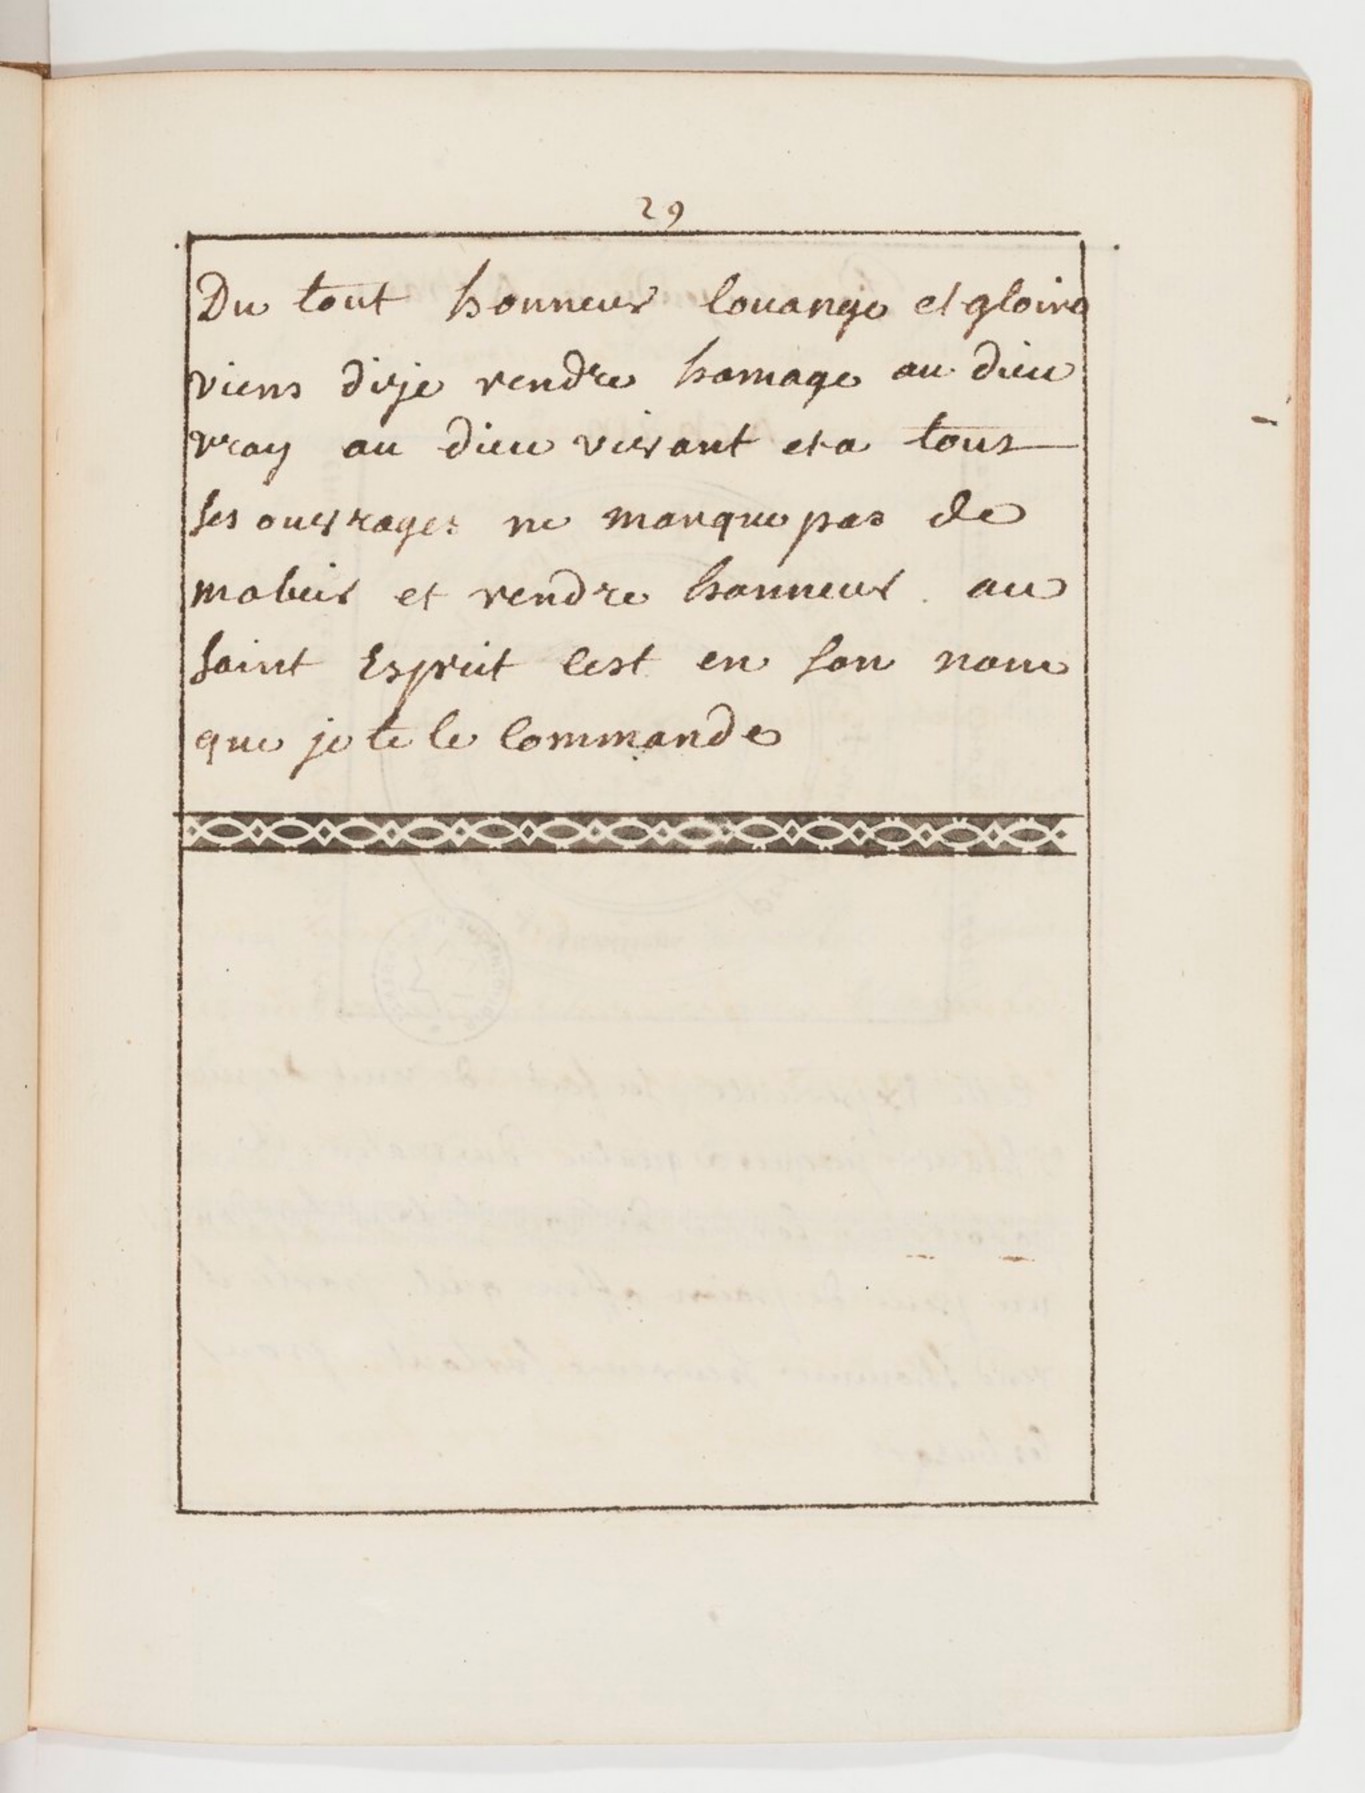 29
Du tout honneur louange et gloire
viens dirje rendre homage au dieu
vray au dieu vivant et a tous
ses ouvrages ne manque pas de
mobeir et rendre honneur au
saint Esprit cest en son nom
que je te le commande